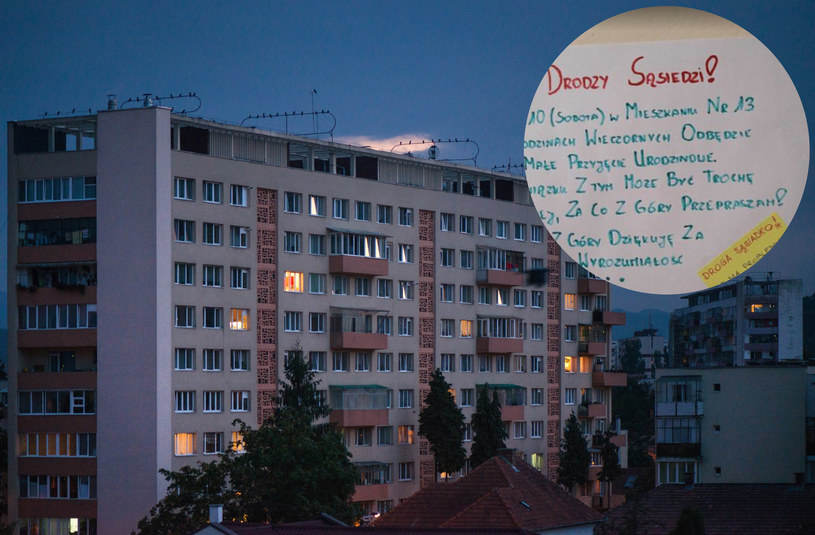 DRODZY SĄSIEDZI!
10 (SOBOTA) W MIESZKANIU NR 13
ODZINACH WIECZORNYCH ODBĘDZIE
MAŁE PRZYJĘCIE URODZINOWE.
WIĄZKU Z TYM MOŻE BYĆ TROCHĘ
EJ, ZA CO Z GÓRY PRZEPRASZAM!
Z GÓRY DZIĘKUJĘ ZA
WYROZUMIAŁOŚĆ
DROGA SĄSIADKO!